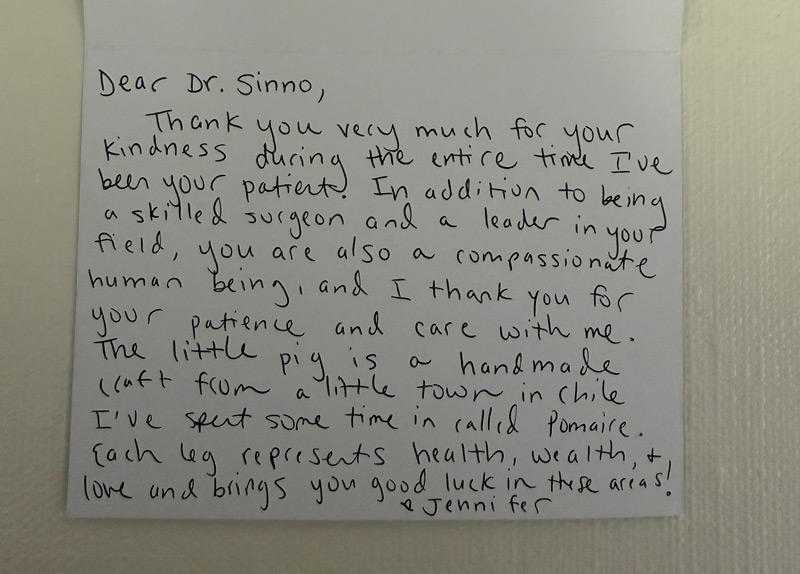 Dear Dr. Sinno,
Thank you very much for your
kindness during the entire time I've
been your patient. In addition to being
a skilled surgeon and a leader in your
field, you are also a compassionate
human being, and I thank you for
your patience and care with me.
The little pig is a handmade
craft from a little town in Chile
I've spent some time in called Pomaire.
Each leg represents health, wealth, +
love and brings you good luck in these areas!
Jennifer